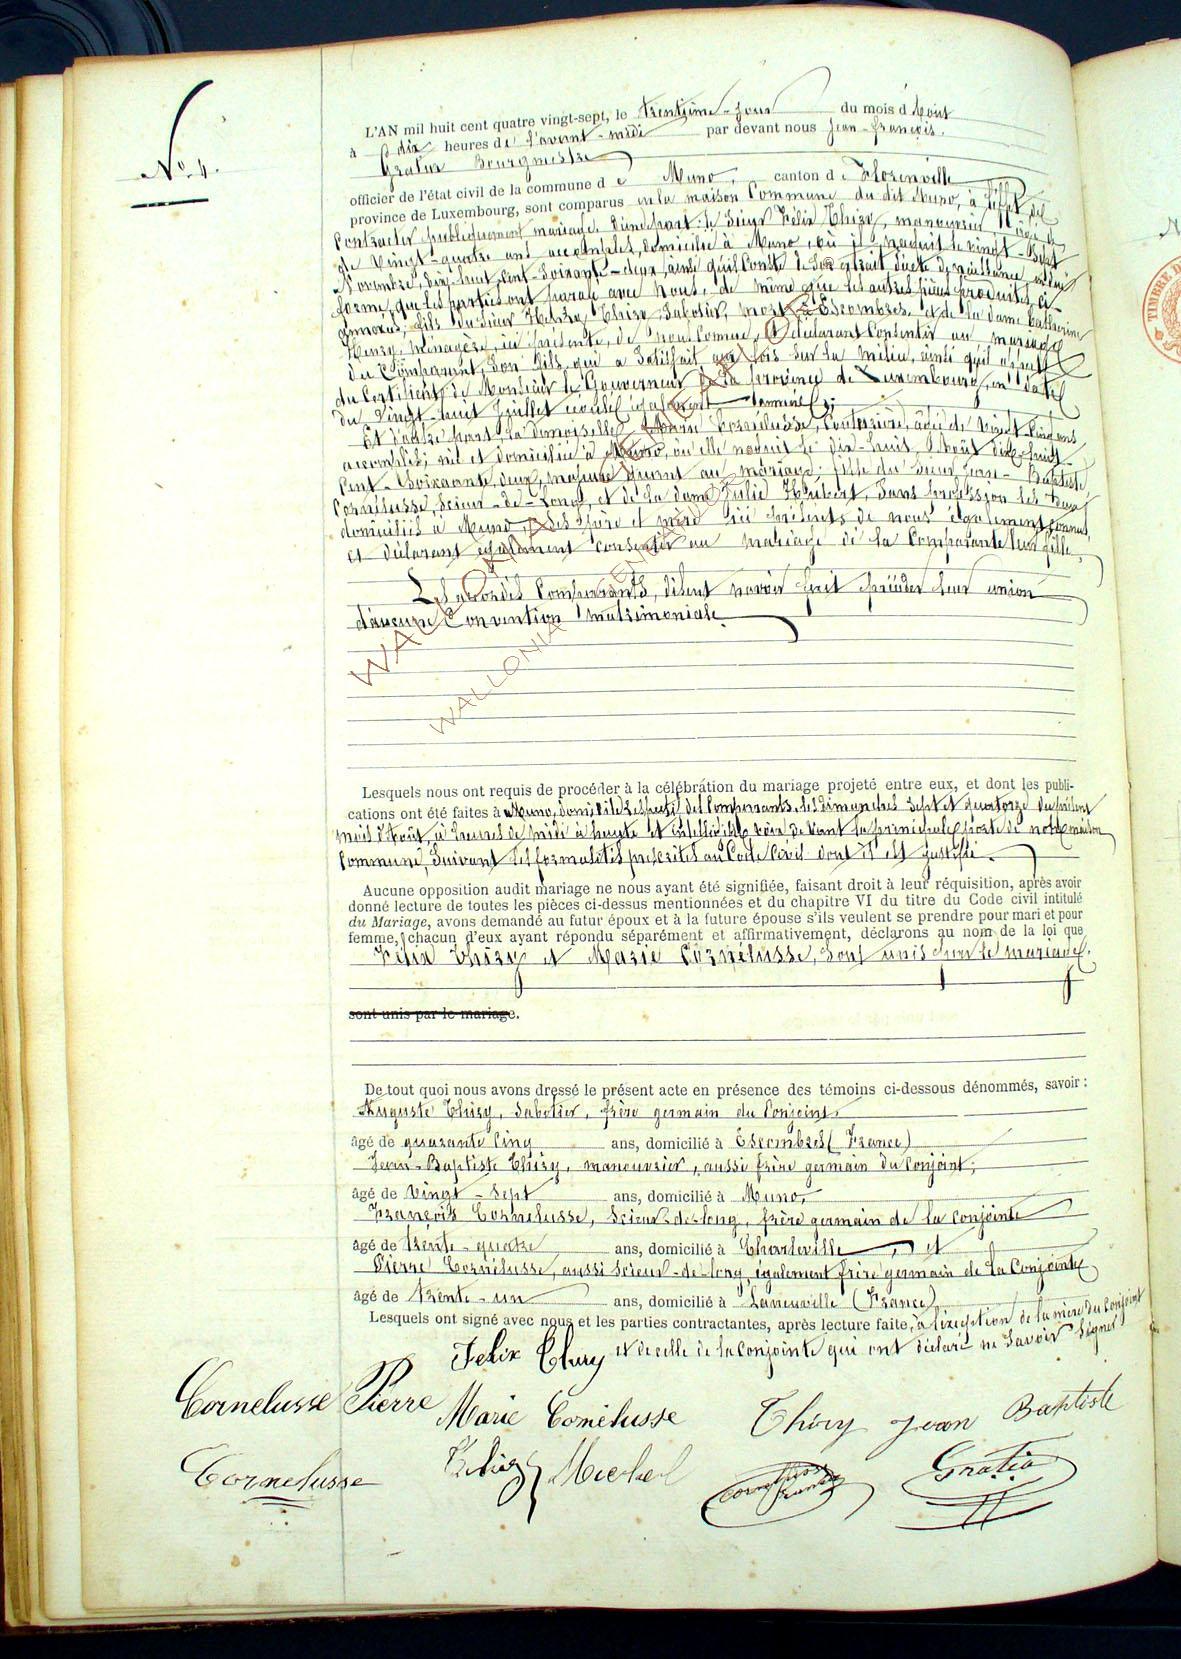 No 4.
L'AN mil huit cent quatre vingt-sept, le trentième jour du mois d'Août
à dix heures de l'avant-midi par devant nous Jean-François
Gratia Bourgmestre
officier de l'état civil de la commune de Muno, canton de Florenville
province de Luxembourg, sont comparus en la maison Commune du dit Muno, à l'effet de
Contracter publiquement mariage. D'une part: le Sieur Félix Thiry, manouvrier,
de Vingt-quatre ans accomplis, domicilié à Muno, où il naquit le vingt-
Novembre, dix-huit-Cent-Soixante-deux, ainsi qu'il Conste de Son extrait d'acte de naissance, en
forme, que les parties ont parafé avec Nous, de même que les autres pièces produites, ci
annexées, fils du Sieur Henry Thiry, Sabotier, mort à Escombres, et de la dame Catherine
Henry, ménagère, ici présente, de nous Connue, et déclarant Consentir au mariage
du Comparant, Son fils, qui a Satisfait aux lois sur la milice, ainsi qu'il appert
du Certificat de Monsieur le Gouverneur de la province de Luxembourg, en date
du Vingt-huit Juillet écoulé également annexé;
Et d'autre part, la demoiselle Marie Cornélusse, Couturière, âgée de Vingt-Cinq ans
accomplis, née et domiciliée à Muno, où elle naquit le dix-huit Août dix-huit-
Cent-Soixante, deux, majeure quant au mariage, fille du Sieur Jean-Baptiste
Cornélusse, Scieur-de-Long, et de la dame Julie Hubert, Sans profession les deux
domiciliés à Muno, Ses père et mère ici présents de nous également connus,
et déclarant également consentir au mariage de la Comparante leur fille.
Lesquels Comparants, disent n'avoir fait précéder leur union
d'aucune Convention matrimoniale.
WALLONIA GENEALOGIE
WALLONIA GENEALOGIE
Lesquels nous ont requis de procéder à la célébration du mariage projeté entre eux, et dont les publi-
cations ont été faites à Muno, domicile respectif des Comparants, les dimanches Sept et quatorze du présent
mois d'Août, à heures de midi à haute et intelligible voix devant la principale porte de notre maison
Commune, Suivant les formalités prescrites au Code Civil dont il est justifié.
Aucune opposition audit mariage ne nous ayant été signifiée, faisant droit à leur réquisition, après avoir
donné lecture de toutes les pièces ci-dessus mentionnées et du chapitre VI du titre du Code civil intitulé
du Mariage, avons demandé au futur époux et à la future épouse s'ils veulent se prendre pour mari et pour
femme, chacun d'eux ayant répondu séparément et affirmativement, déclarons au nom de la loi que
Félix Thiry et Marie Cornélusse, Sont unis par le mariage.
sont unis par le mariage.
De tout quoi nous avons dressé le présent acte en présence des témoins ci-dessous dénommés, savoir:
Auguste Thiry, Sabotier, frère germain du Conjoint.
âgé de quarante Cinq ans, domicilié à Escombres (France)
Jean-Baptiste Thiry, manouvrier, aussi frère germain du Conjoint;
âgé de Vingt-Sept ans, domicilié à Muno,
François Cornélusse, Scieur-de-long, frère germain de la conjointe
âgé de trente-quatre ans, domicilié à Charleville, et
Pierre Cornélusse, aussi Scieur-de-long, également frère germain de la Conjointe
âgé de trente-un ans, domicilié à Laneuville (France)
Lesquels ont signé avec nous et les parties contractantes, après lecture faite, à l'exception de la mère du Conjoint
et de celle de la Conjointe qui ont déclaré ne Savoir Signer
Félix Thiry
Cornelusse Pierre Marie Cornélusse Thiry Jean Baptiste
Cornelusse Gratia
TIMBRE D